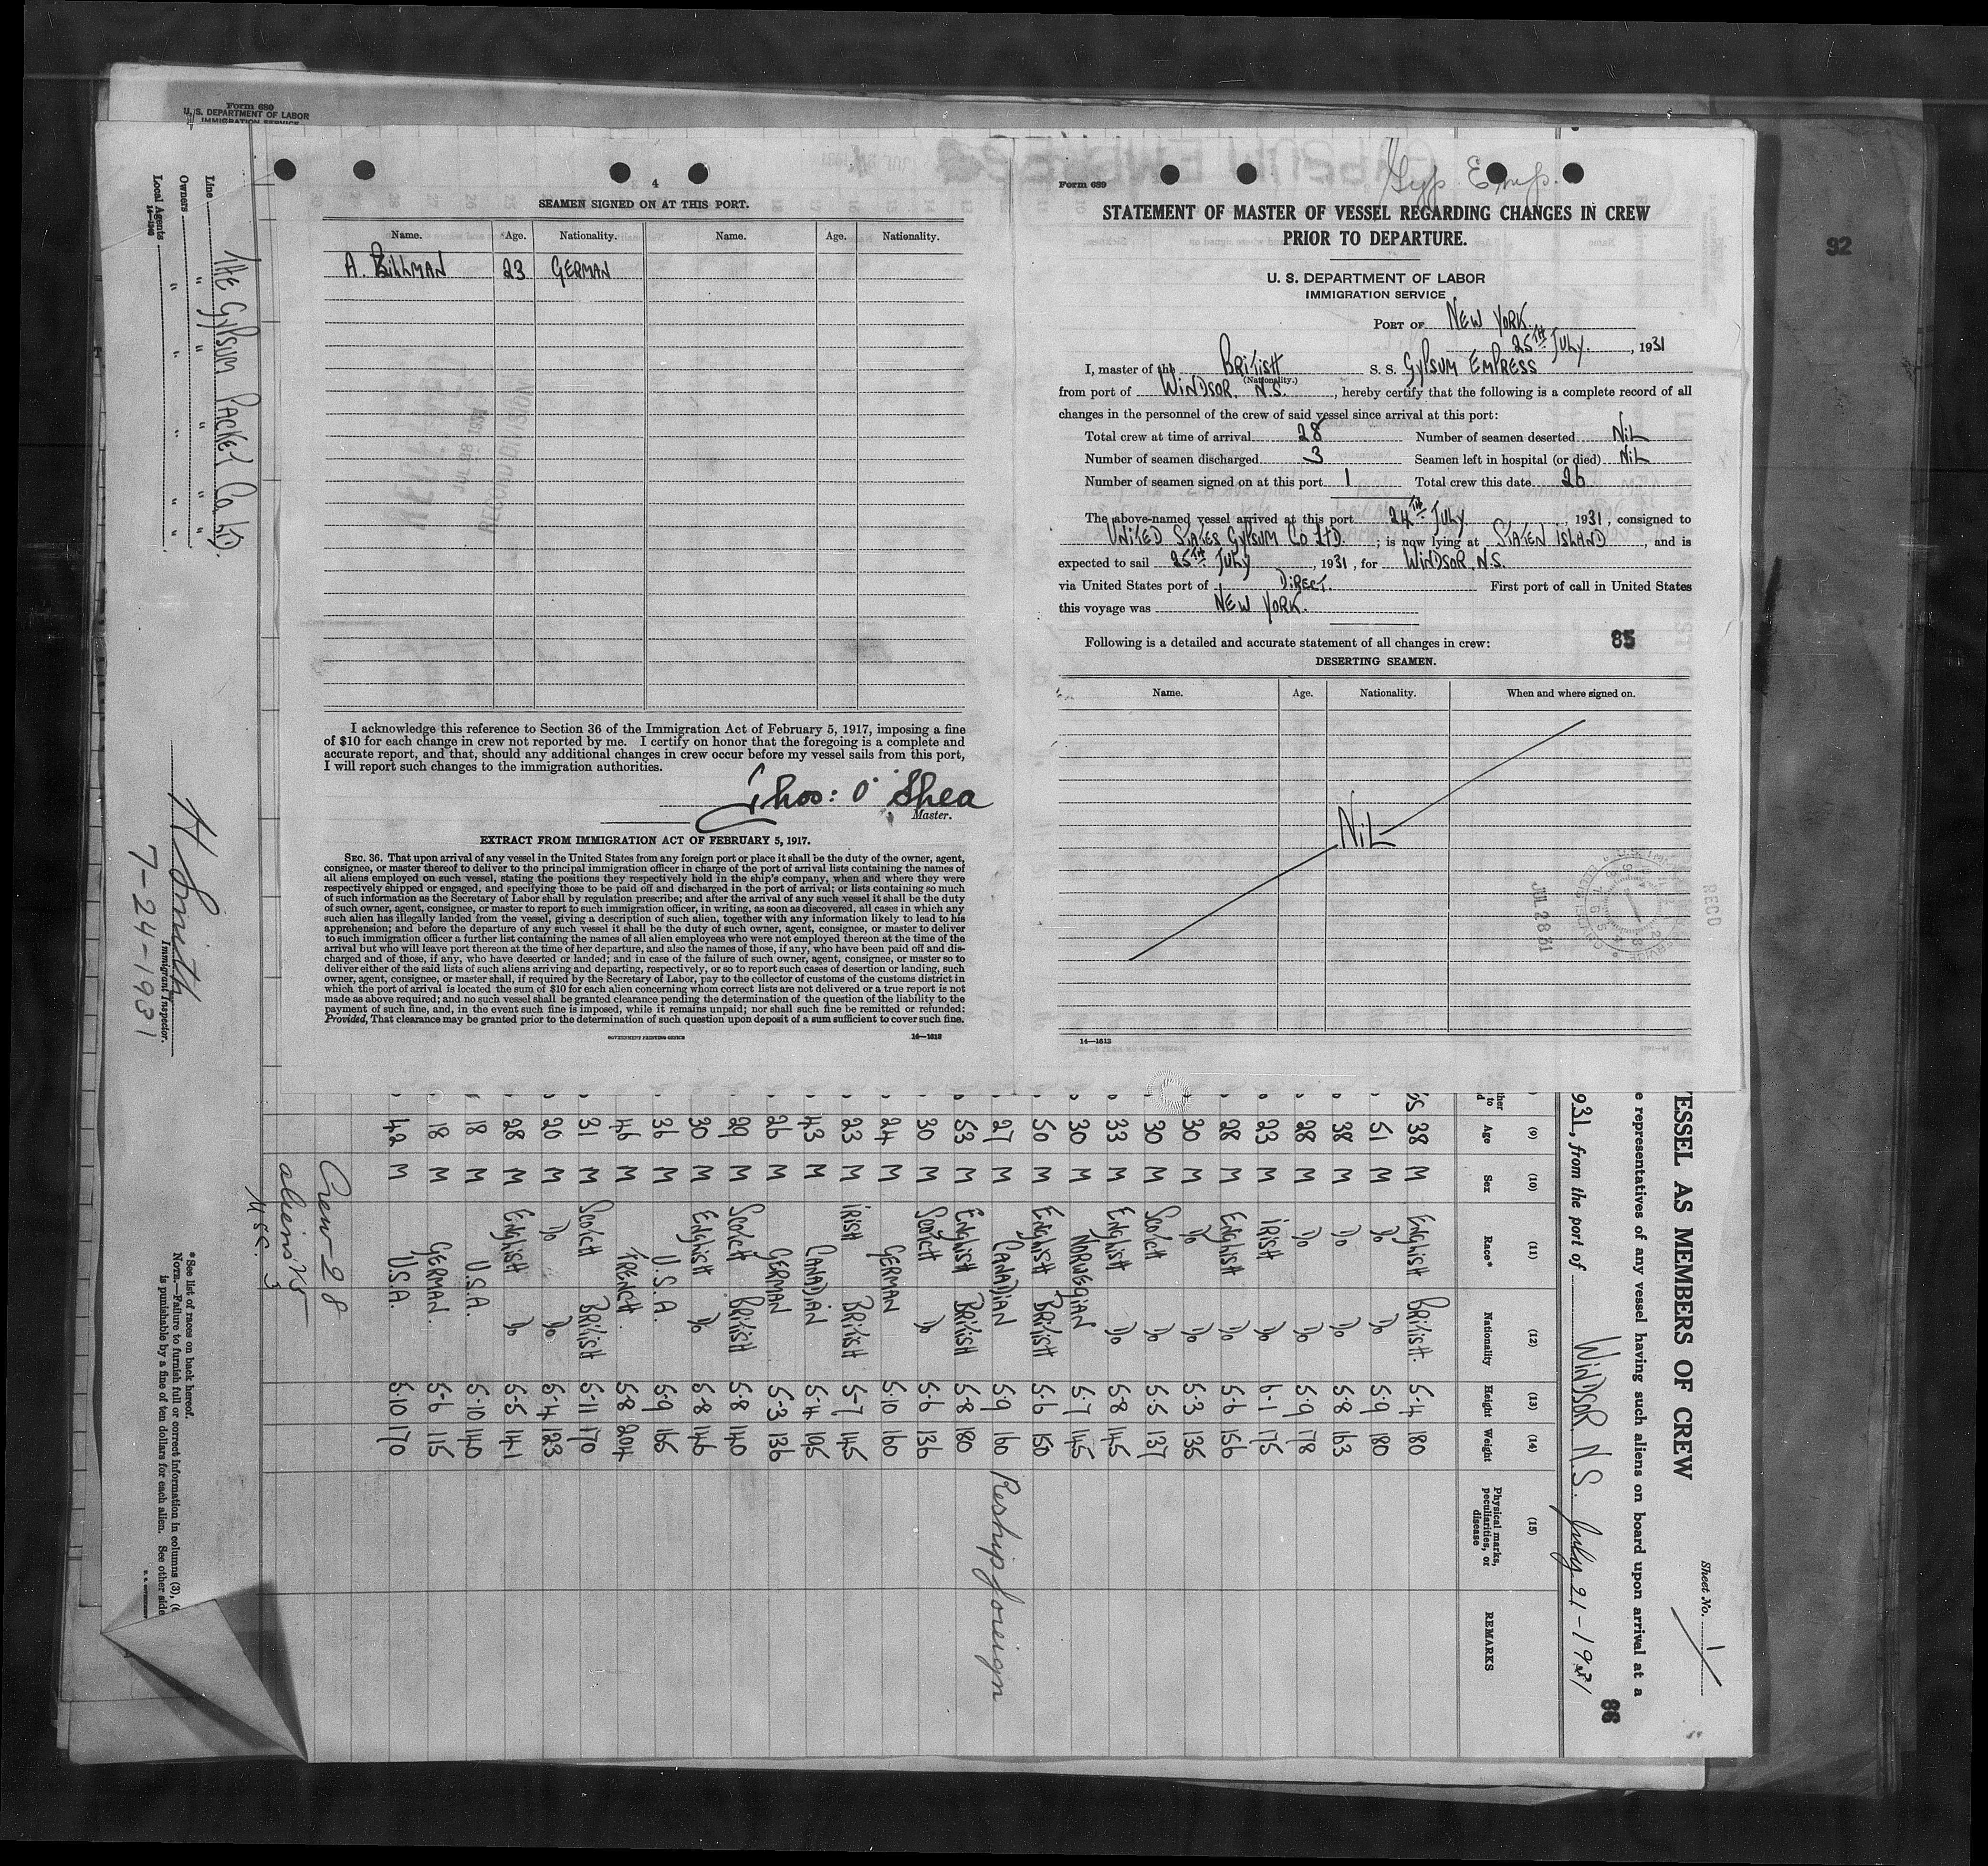 Form 689
U. S. DEPARTMENT OF LABOR
IMMIGRATION SERVICE
4
SEAMEN SIGNED ON AT THIS PORT.
Name. Age. Nationality. Name. Age. Nationality.
A. Billman 23 German
I acknowledge this reference to Section 36 of the Immigration Act of February 5, 1917, imposing a fine
of $10 for each change in crew not reported by me. I certify on honor that the foregoing is a complete and
accurate report, and that, should any additional changes in crew occur before my vessel sails from this port,
I will report such changes to the immigration authorities.
Thos: O'Shea
Master.
EXTRACT FROM IMMIGRATION ACT OF FEBRUARY 5, 1917.
SEC. 36. That upon arrival of any vessel in the United States from any foreign port or place it shall be the duty of the owner, agent,
consignee, or master thereof to deliver to the principal immigration officer in charge of the port of arrival lists containing the names of
all aliens employed on such vessel, stating the positions they respectively hold in the ship's company, when and where they were
respectively shipped or engaged, and specifying those to be paid off and discharged in the port of arrival; or lists containing so much
of such information as the Secretary of Labor shall by regulation prescribe; and after the arrival of any such vessel it shall be the duty
of such owner, agent, consignee, or master to report to such immigration officer, in writing, as soon as discovered, all cases in which any
such alien has illegally landed from the vessel, giving a description of such alien, together with any information likely to lead to his
apprehension; and before the departure of any such vessel it shall be the duty of such owner, agent, consignee, or master to deliver
to such immigration officer a further list containing the names of all alien employees who were not employed thereon at the time of the
arrival but who will leave port thereon at the time of her departure, and also the names of those, if any, who have been paid off and dis-
charged and of those, if any, who have deserted or landed; and in case of the failure of such owner, agent, consignee, or master so to
deliver either of the said lists of such aliens arriving and departing, respectively, or so to report such cases of desertion or landing, such
owner, agent, consignee, or master shall, if required by the Secretary of Labor, pay to the collector of customs of the customs district in
which the port of arrival is located the sum of $10 for each alien concerning whom correct lists are not delivered or a true report is not
made as above required; and no such vessel shall be granted clearance pending the determination of the question of the liability to the
payment of such fine, and, in the event such fine is imposed, while it remains unpaid; nor shall such fine be remitted or refunded:
Provided, That clearance may be granted prior to the determination of such question upon deposit of a sum sufficient to cover such fine.
GOVERNMENT PRINTING OFFICE 14—1612
Form 689
Gyp. Emp.
STATEMENT OF MASTER OF VESSEL REGARDING CHANGES IN CREW
PRIOR TO DEPARTURE.
U. S. DEPARTMENT OF LABOR
IMMIGRATION SERVICE
PORT OF New York.
25TH July., 1931
I, master of the British S. S. Gypsum Empress
(Nationality.)
from port of Windsor. N.S., hereby certify that the following is a complete record of all
changes in the personnel of the crew of said vessel since arrival at this port:
Total crew at time of arrival 28 Number of seamen deserted Nil
Number of seamen discharged 3 Seamen left in hospital (or died) Nil
Number of seamen signed on at this port 1 Total crew this date 26
The above-named vessel arrived at this port 24TH July, 1931, consigned to
United States Gypsum Co Ltd.; is now lying at Staten Island, and is
expected to sail 25TH July, 1931, for Windsor. N.S.
via United States port of Direct. First port of call in United States
this voyage was New York.
Following is a detailed and accurate statement of all changes in crew:
85
DESERTING SEAMEN.
Name. Age. Nationality. When and where signed on.
Nil
JUL 28 31
RECD
14—1612
92
Line The Gypsum Packet Co. Ltd.
Owners " " " " "
Local Agents " " " " "
14—1240
H Smith
Immigrant Inspector.
7-24-1931
ESSEL AS MEMBERS OF CREW
Sheet No. 1
e representatives of any vessel having such aliens on board upon arrival at a
931, from the port of Windsor. N.S. July 21-1931
86
(9) (10) (11) (12) (13) (14) (15)
Age Sex Race* Nationality Height Weight Physical marks, peculiarities, or disease REMARKS
38 M English British. 5-4 180
51 M Do Do 5-9 180
38 M Do Do 5-8 163
28 M Do Do 5-9 178
23 M Irish Do 6-1 175
28 M English Do 5-6 156
30 M Do Do 5-3 135
30 M Scotch Do 5-5 137
33 M English Do 5-8 145
30 M Norwegian 5-7 145
50 M English British 5-6 150
27 M Canadian 5-9 160 Reship foreign
53 M English British 5-8 180
30 M Scotch Do 5-6 136
24 M German 5-10 160
23 M Irish British 5-7 145
43 M Canadian 5-4 195
26 M German 5-3 136
29 M Scotch British 5-8 140
30 M English Do 5-8 146
36 M U.S.A. 5-9 165
46 M French. 5-8 204
31 M Scotch British 5-11 170
20 M Do Do 5-4 123
28 M English Do 5-5 141
18 M U.S.A. 5-10 140
18 M German. 5-6 115
42 M U.S.A. 5-10 170
Crew-28
aliens 25
U.S.C. 3
*See list of races on back hereof.
NOTE.—Failure to furnish full or correct information in columns (3),
is punishable by a fine of ten dollars for each alien. See other side